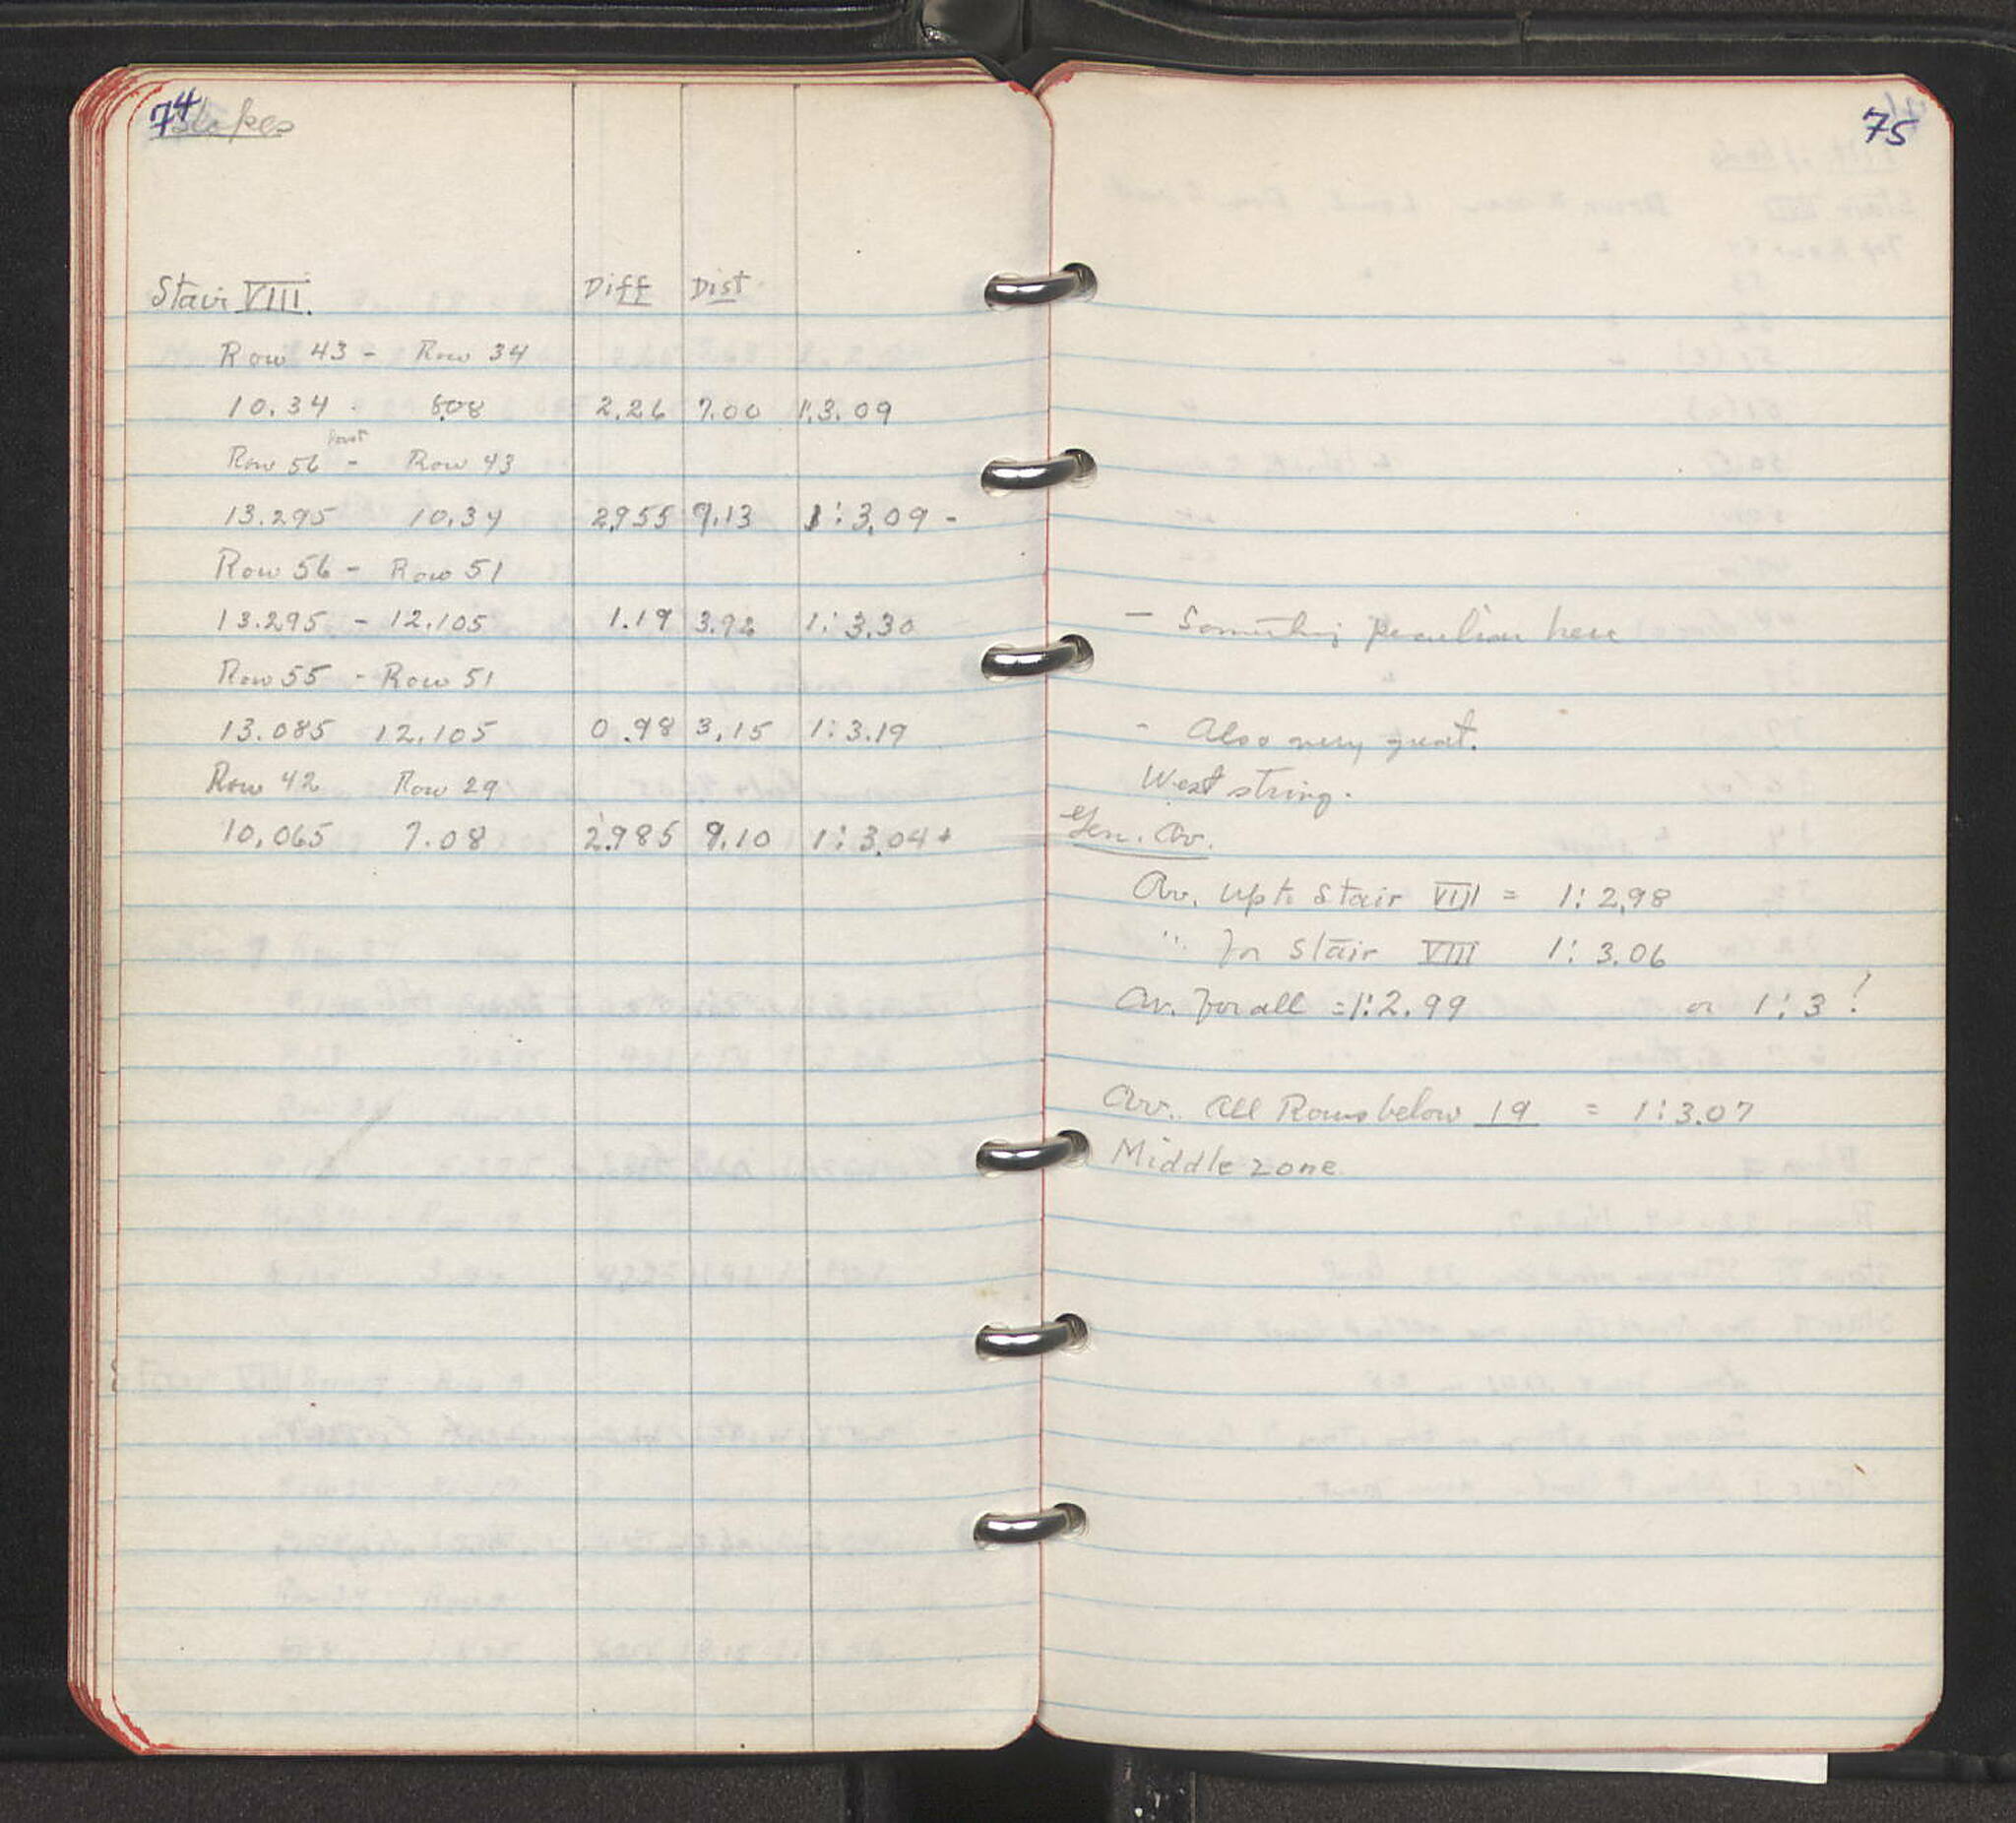 74
Slopes
Stair VIII. Diff Dist.
Row 43 - Row 34
10.34 - 8.08 2.26 7.00 1:3.09
Row 56 - Row 43
13.295 10.34 2.955 9.13 1:3.09 -
Row 56 - Row 51
13.295 - 12.105 1.19 3.92 1:3.30
Row 55 - Row 51
13.085 12.105 0.98 3.15 1:3.19
Row 42 Row 29
10.065 7.08 2.985 9.10 1:3.04+
75
- Something peculiar here
- Also very great.
West string.
Gen. Av.
Av. up to Stair VIII = 1:2.98
" for Stair VIII 1:3.06
Av. for all = 1:2.99 or 1:3!
Av. All Rows below 19 = 1:3.07
Middle zone.